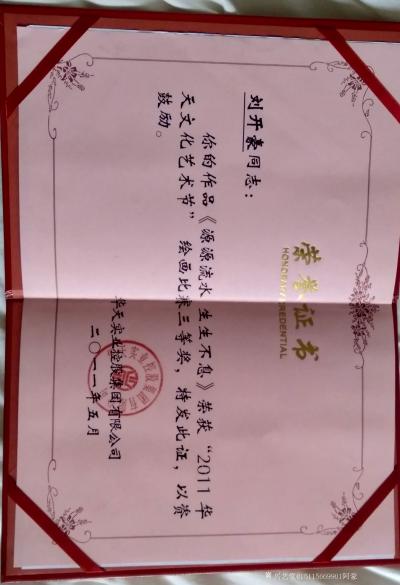 荣誉证书
HONORARY CREDENTIAL
刘开豪同志：
你的作品《源源流水 生生不息》荣获“2011华
天文化艺术节” 绘画比赛三等奖，特发此证，以资
鼓励。
华天实业控股集团有限公司
二〇一一年五月